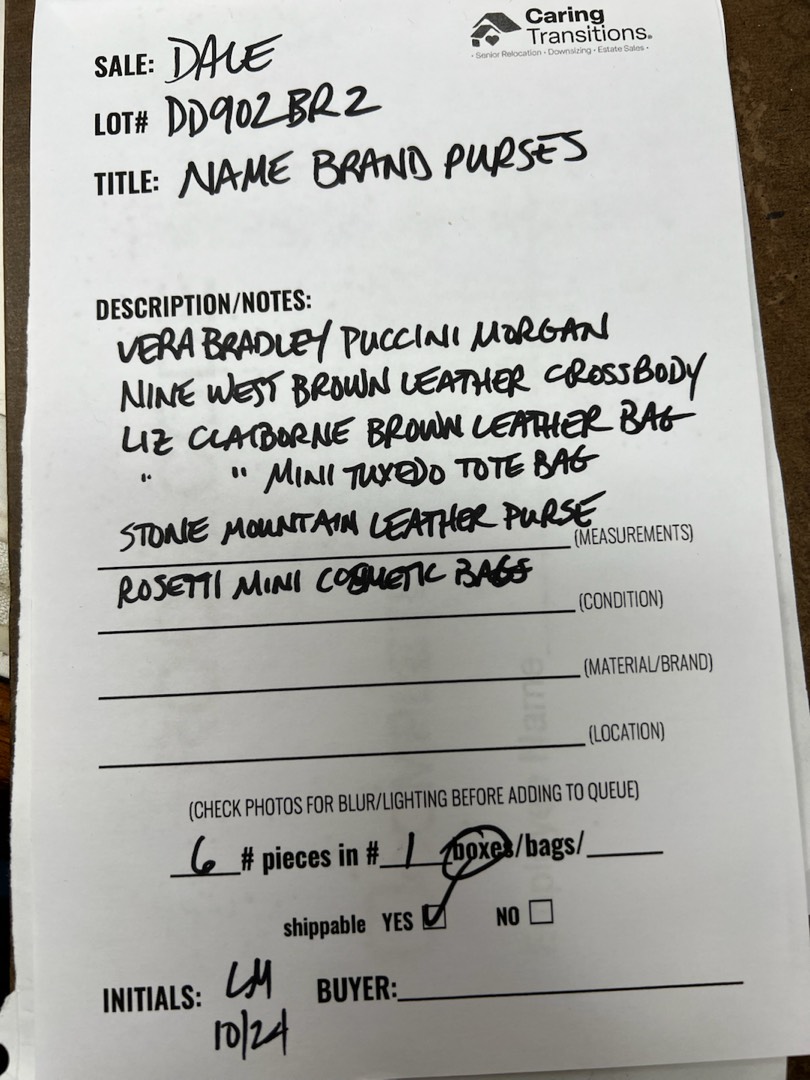 Caring
Transitions.
· Senior Relocation · Downsizing · Estate Sales ·
SALE: DALE
LOT# DD902BR2
TITLE: NAME BRAND PURSES
DESCRIPTION/NOTES:
VERA BRADLEY PUCCINI MORGAN
NINE WEST BROWN LEATHER CROSSBODY
LIZ CLAIBORNE BROWN LEATHER BAG
" " MINI TUXEDO TOTE BAG
STONE MOUNTAIN LEATHER PURSE
(MEASUREMENTS)
ROSETTI MINI COSMETIC BAGS
(CONDITION)
(MATERIAL/BRAND)
(LOCATION)
(CHECK PHOTOS FOR BLUR/LIGHTING BEFORE ADDING TO QUEUE)
6 # pieces in # 1 boxes/bags/
shippable YES NO
INITIALS: LM BUYER:
10/24